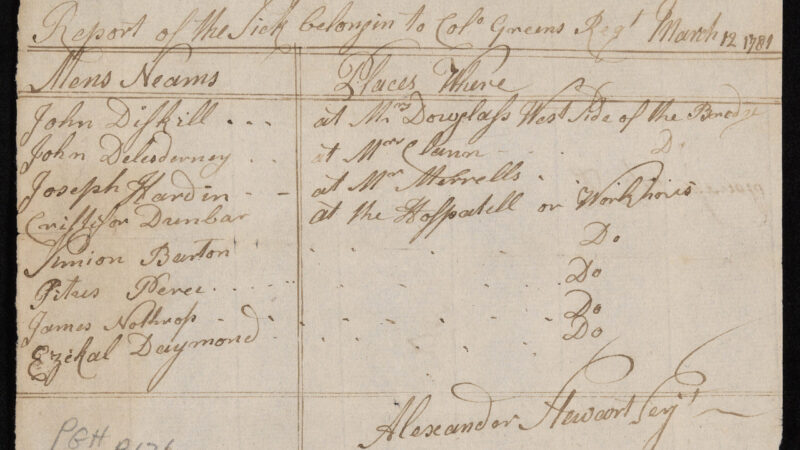 Report of the Sick belongin to Colo Greens Regt March 12 1781
Mens Neams Places Where
John Diskill ... at Mrs Dowglass West Side of the Bredg
John Delesderney .. at Mrs Clann Do
Joseph Hardin - - at Mr Merrells
Cristifor Dunbar at the Hospatell or Workhows
Simion Burton Do
Pitus Peree Do
James Nothrop Do
Ezekal Daymond Do
Alexander Stewart Serjt
PGH